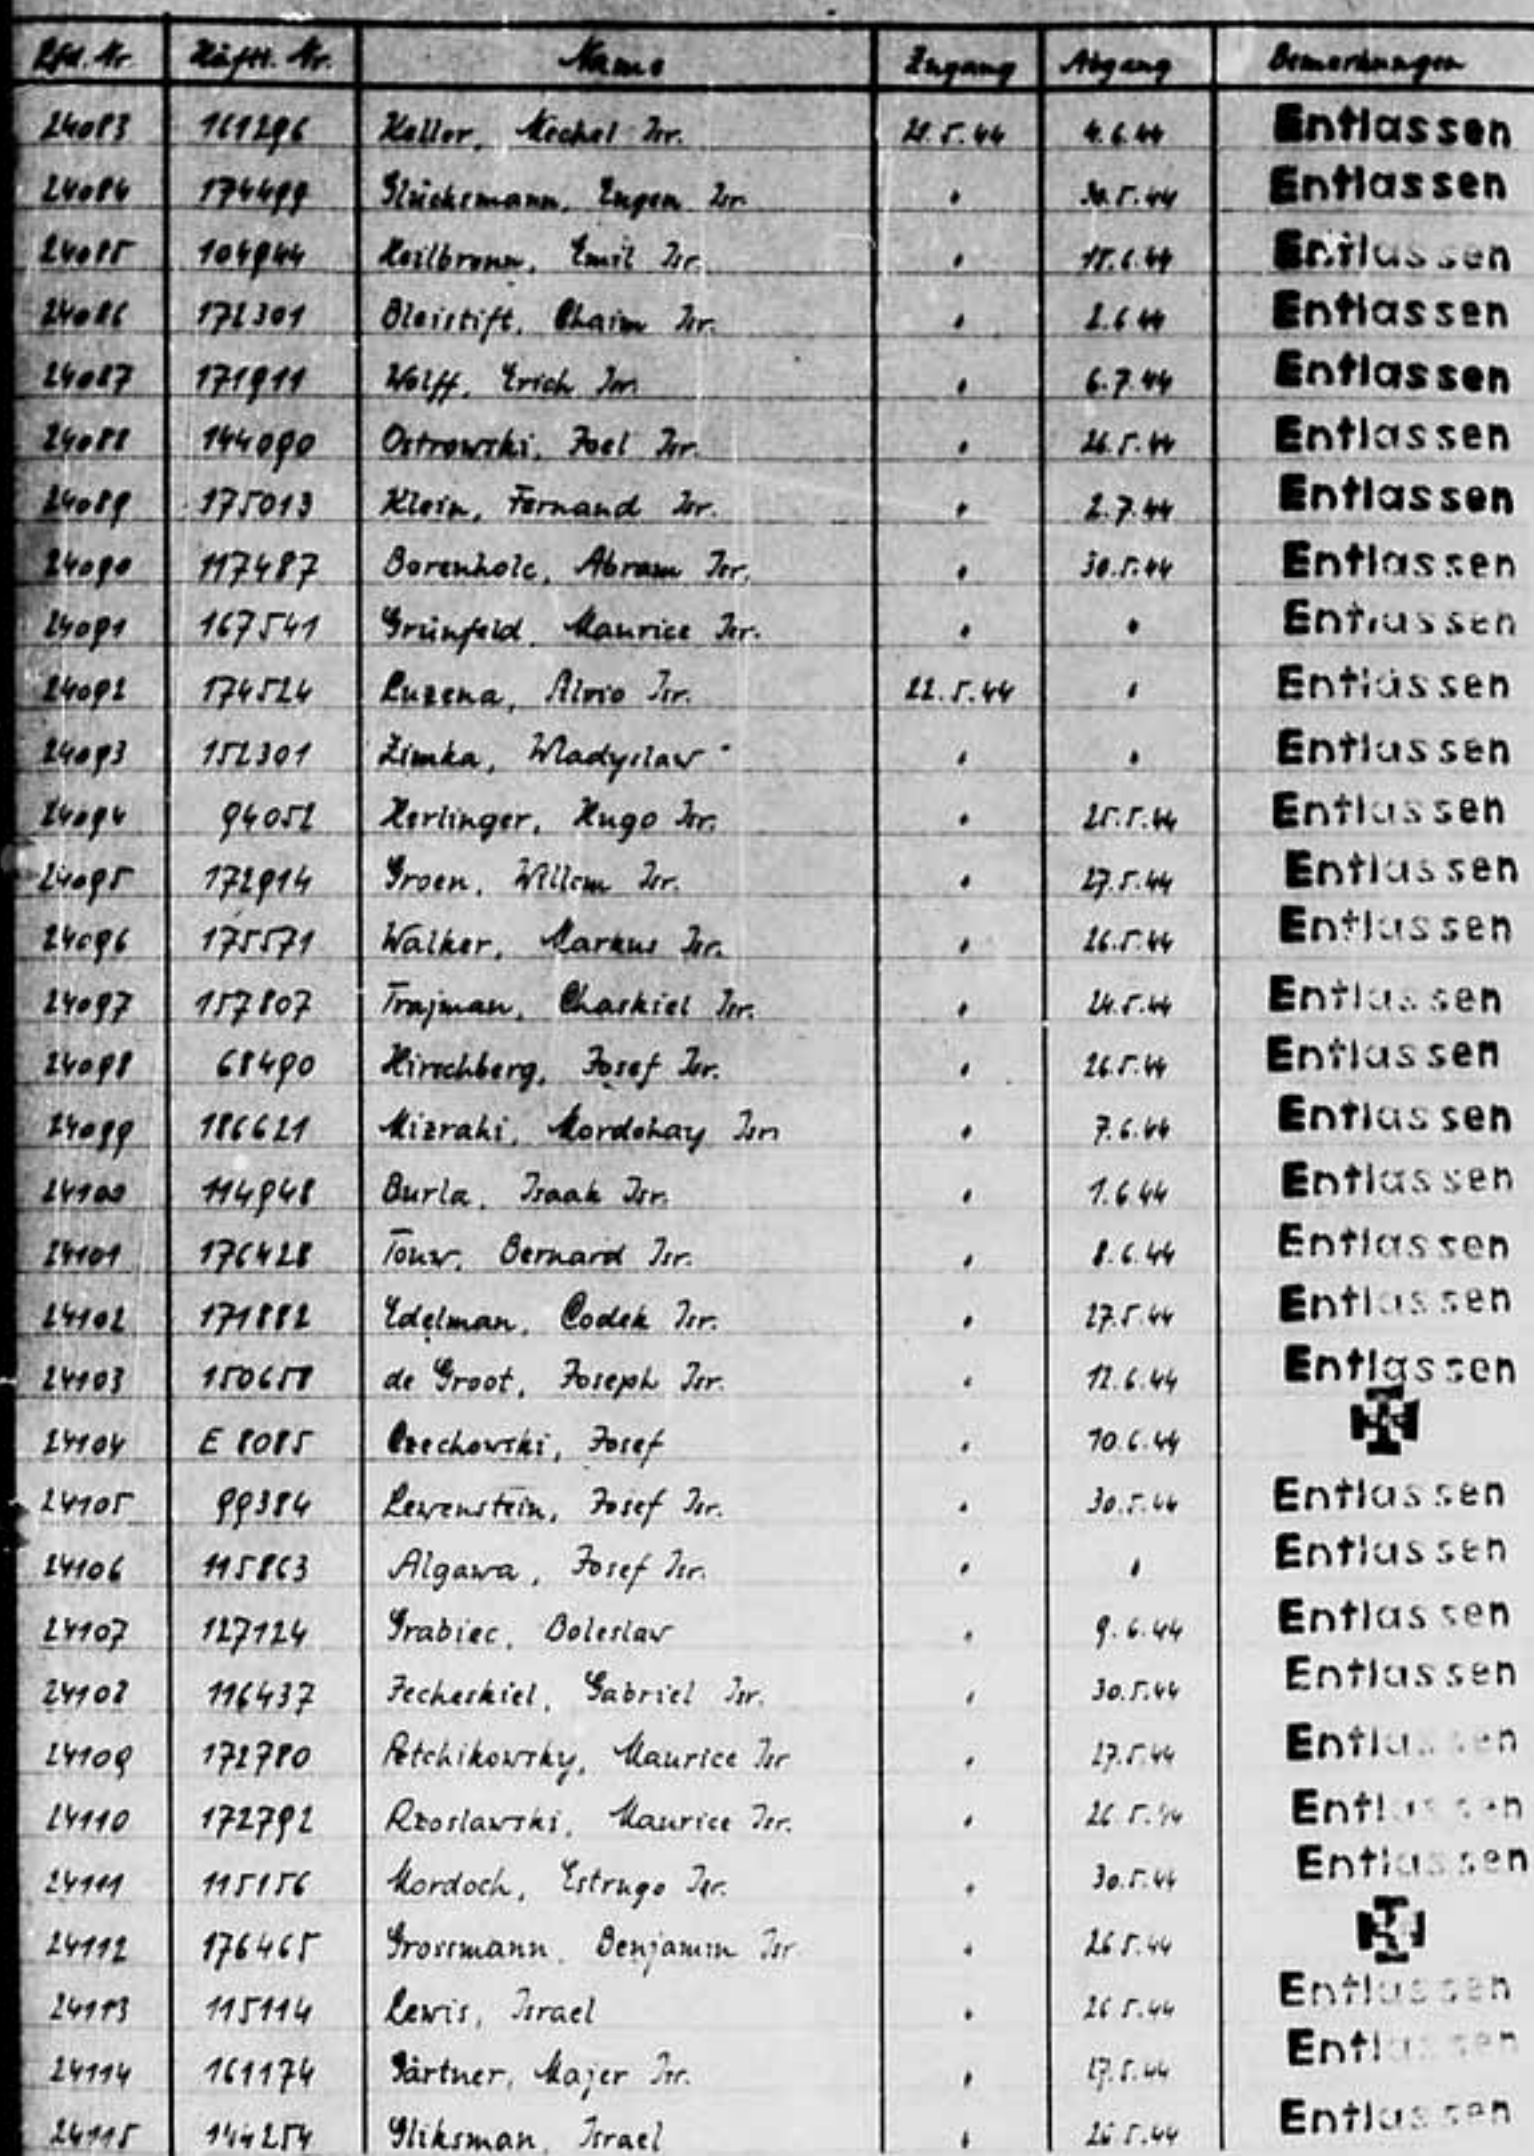 Lfd. Nr. Häftl. Nr. Name Zugang Abgang Bemerkungen
24083 161296 Keller, Mechel Isr. 21.5.44 4.6.44 Entlassen
24084 174499 Glücksmann, Eugen Isr. " 30.5.44 Entlassen
24085 104944 Heilbronn, Emil Isr. " 15.6.44 Entlassen
24086 172301 Bleistift, Chaim Isr. " 2.6.44 Entlassen
24087 171911 Wolff, Erich Isr. " 6.7.44 Entlassen
24088 144090 Ostrowski, Joel Isr. " 26.5.44 Entlassen
24089 175013 Klein, Fernand Isr. " 2.7.44 Entlassen
24090 117487 Borenholc, Abram Isr. " 30.5.44 Entlassen
24091 167541 Grünfeld, Maurice Isr. " " Entlassen
24092 174524 Luzena, Isr. 22.5.44 " Entlassen
24093 152301 Zimka, Wladyslaw " " Entlassen
24094 94052 Herlinger, Hugo Isr. " 25.5.44 Entlassen
24095 172914 Groen, Willem Isr. " 27.5.44 Entlassen
24096 175571 Walker, Markus Isr. " 26.5.44 Entlassen
24097 157807 Trajman, Chaskiel Isr. " 24.5.44 Entlassen
24098 68490 Hirschberg, Josef Isr. " 26.5.44 Entlassen
24099 186621 Mizrahi, Mordohay Isr. " 7.6.44 Entlassen
24100 114948 Burla, Isaak Isr. " 1.6.44 Entlassen
24101 176428 Touw, Bernard Isr. " 8.6.44 Entlassen
24102 171882 Edelman, Codek Isr. " 27.5.44 Entlassen
24103 150658 de Groot, Joseph Isr. " 12.6.44 Entlassen
24104 E 8085 Czechowski, Josef " 10.6.44
24105 99384 Lewenstein, Josef Isr. " 30.5.44 Entlassen
24106 115863 Algawa, Josef Isr. " " Entlassen
24107 127124 Grabiec, Boleslaw " 9.6.44 Entlassen
24108 116437 Jecheskiel, Gabriel Isr. " 30.5.44 Entlassen
24109 172780 Petchikowsky, Maurice Isr " 27.5.44 Entlassen
24110 172792 Rzoslawski, Maurice Isr. " 26.5.44 Entlassen
24111 115156 Mordoch, Estrugo Isr. " 30.5.44 Entlassen
24112 176465 Grossmann, Benjamin Isr " 26.5.44
24113 115114 Lewis, Israel " 26.5.44 Entlassen
24114 161174 Gärtner, Majer Isr. " 27.5.44 Entlassen
24115 144254 Gliksman, Israel " 26.5.44 Entlassen